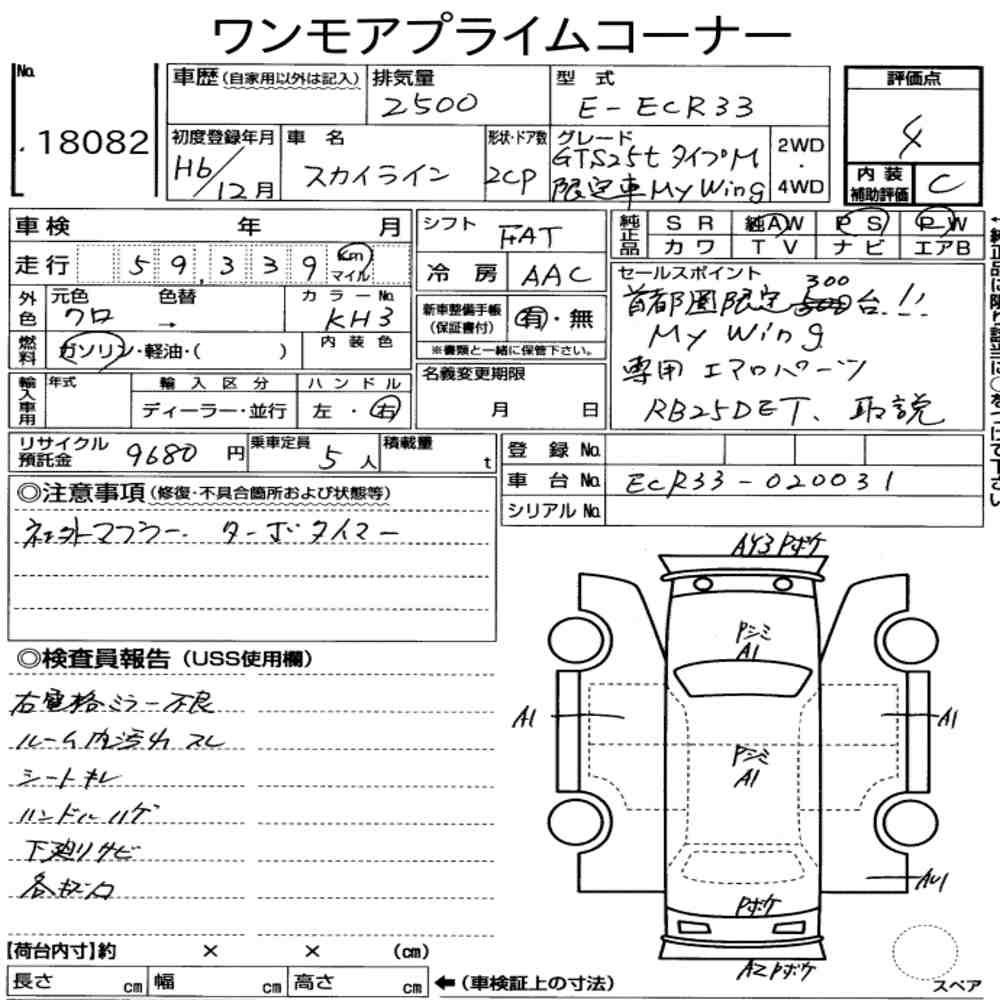 ワンモアプライムコーナー
No. 18082
車歴 (自家用以外は記入)
排気量 2500
型式 E-ECR33
評価点 4
初度登録年月 H6/12月
車名 スカイライン
形状・ドア数 2CP
グレード GTS25t タイプM 限定車 My Wing
2WD・4WD
内装補助評価 C
車検 年 月
走行 59,339 km マイル
シフト FAT
冷房 AAC
純正品 SR 純AW PS PW
カワ TV ナビ エアB
外色 元色 クロ → 色替
カラーNo. KH3
燃料 ガソリン・軽油・( )
内装色
新車整備手帳(保証書付) 有・無
※書類と一緒に保管下さい。
セールスポイント
首都圏限定 300台!!
My Wing
専用エアロパーツ
RB25DET、取説
輸入車用 年式
輸入区分 ディーラー・並行
ハンドル 左・右
名義変更期限 月 日
リサイクル預託金 9680円
乗車定員 5人
積載量 t
登録No.
車台No. ECR33-020031
シリアルNo.
◎注意事項 (修復・不具合箇所および状態等)
社外マフラー. ターボタイマー
◎検査員報告 (USS使用欄)
右電格ミラー不良
ルーム内汚れ スレ
シートキレ
ハンドルハゲ
下廻りサビ
AY3 Pボケ
Pシミ
A1
A1
A1
Pシミ
A1
AU1
Pボケ
A2 Pボケ
スペア
【荷台内寸】約 × × (cm)
長さ cm 幅 cm 高さ cm ←(車検証上の寸法)